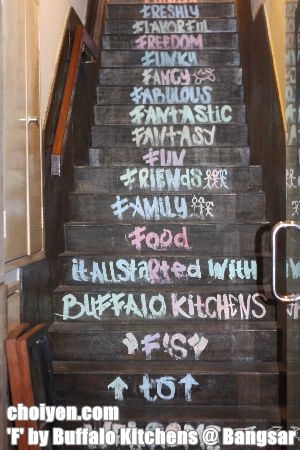 #FRESHLY
#FLAVORFUL
FREEDOM
#FUNKY
FANCY
#FABULOUS
#FANTASTIC
FANTASY
FUN
#FRIENDS
#FAMILY
FOOD
it ALL StARtED WitH
BUFFALO KitCHENS
"F'S"
to
WELCOME
choiyen.com
'F' by Buffalo Kitchens @ Bangsar